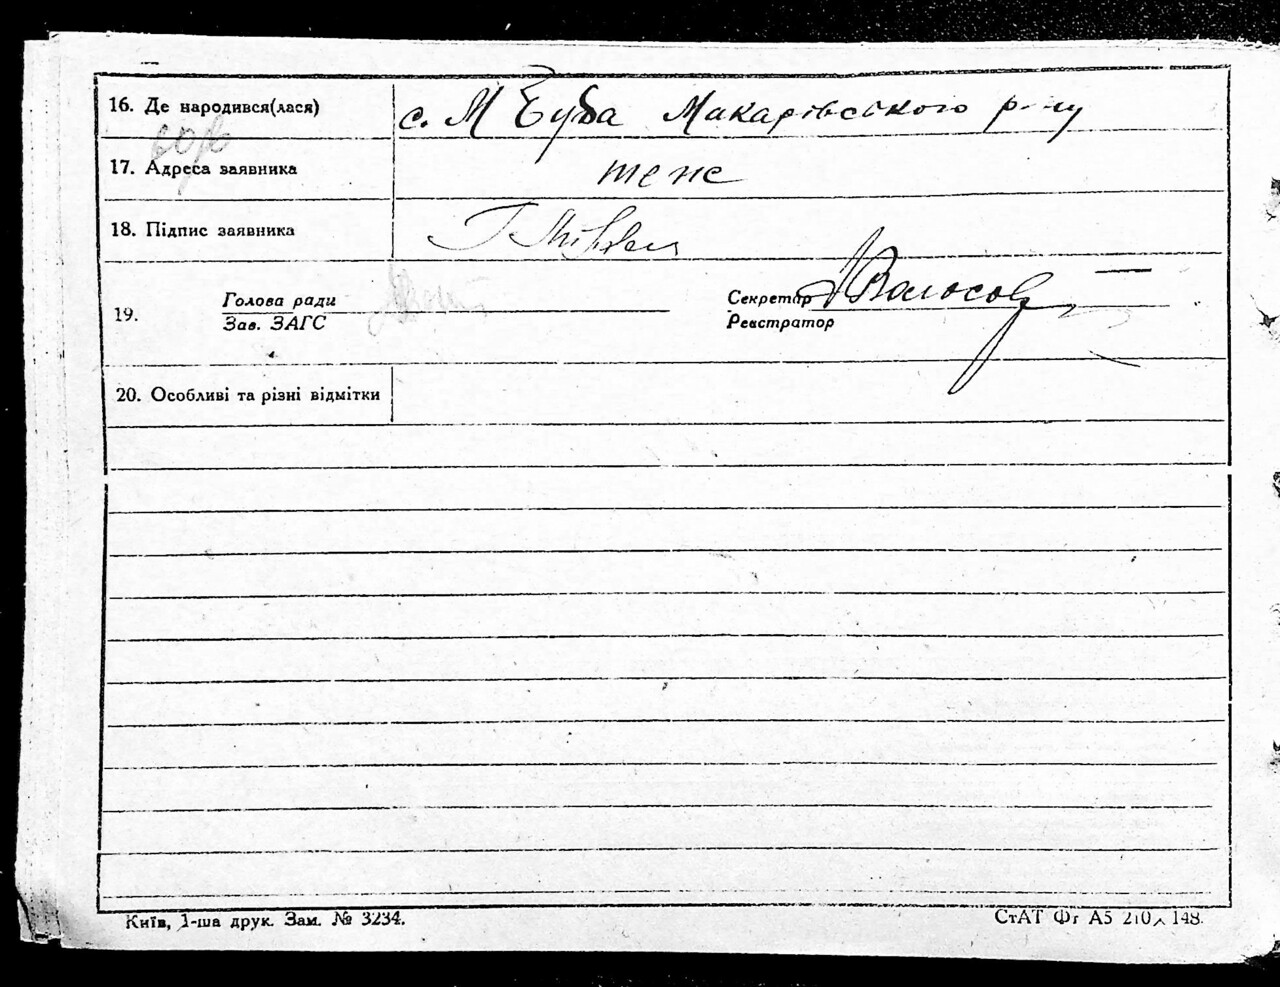 16. Де народився(лася) с. М Буба Макарівського р-ну
17. Адреса заявника теж
18. Підпис заявника
19. Голова ради Секретар
Зав. ЗАГС Реєстратор
20. Особливі та різні відмітки
Київ, 1-ша друк. Зам. № 3234. СтАТ Фг А5 210 148.